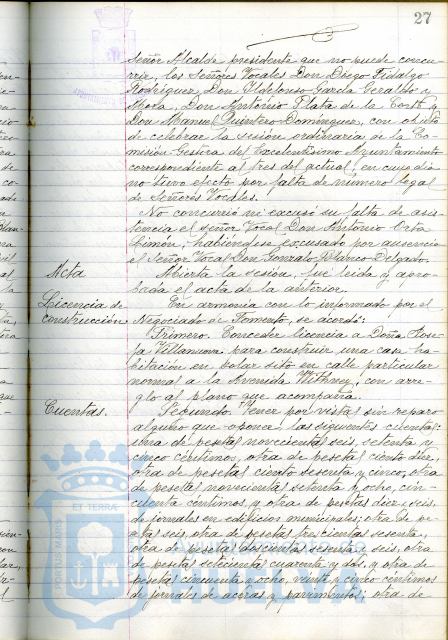 27
Señor Alcalde presidente que no puede concu-
rrir, los Señores Vocales Don Diego Fidalgo
Rodríguez, Don Ildefonso García Geraldo y
Mora, Don Antonio Plata de la Corte y
Don Manuel Quintero Domínguez, con objeto
de celebrar la sesión ordinaria de la Co-
misión Gestora del Excelentísimo Ayuntamiento
correspondiente al tres del actual, en cuyo dia
no tuvo efecto por falta de número legal
de Señores Vocales.
No concurrió ni excusó su falta de asis
tencia el señor Vocal Don Antonio Orta
Limón, habiéndose excusado por ausencia
el Señor Vocal Don Gonzalo Blanco Delgado.
Acta
Abierta la sesión, fué leida y apro-
bada el acta de la anterior.
Licencia de
construcción
En armonia con lo informado por el
Negociado de Fomento, se acordó:
Primero. Conceder licencia a Doña Jose-
fa Villanueva para construir una casa ha-
bitación en solar sito en calle particular
normal a la Avenida Withney, con arre-
glo al plano que acompaña.
Cuentas.
Segundo. Tener por vistas sin reparo
alguno que oponer las siguientes cuentas:
una de pesetas novecientas seis, setenta y
cinco céntimos, otra de pesetas ciento diez,
otra de pesetas ciento sesenta y cinco, otra
de pesetas novecientas setenta y ocho, cin-
cuenta céntimos, y otra de pesetas diez y seis,
de jornales en edificios municipales; otra de pe-
setas seis, otra de pesetas trescientas sesenta,
otra de pesetas doscientas sesenta y seis, otra
de pesetas setecientas cuarenta y dos, y otra de
pesetas cincuenta y ocho, veinte y cinco céntimos
de jornales de aceras y pavimentos; otra de
PORTUS MARIS
ET TERRAE
HUELVA